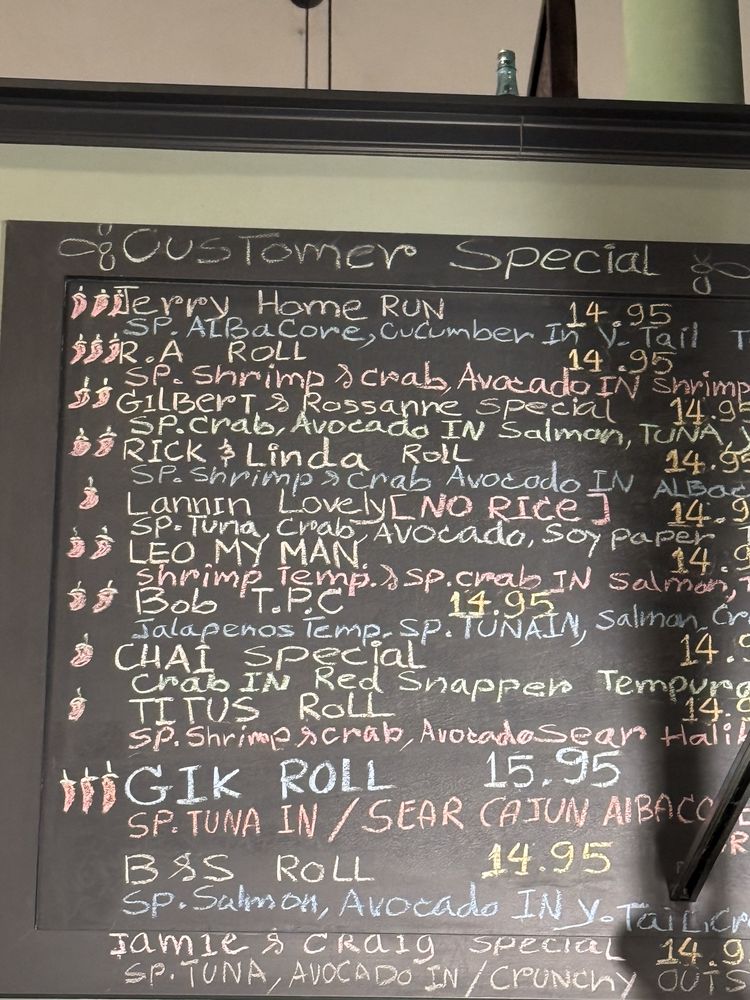 Customer Special
Jerry Home RUN 14.95
SP. AlBaCore, Cucumber In Y. Tail
R.A ROLL 14.95
SP. Shrimp & Crab, Avocado IN Shrimp
GILBERT & Rossanne Special 14.95
SP. Crab, Avocado IN Salmon, TUNA,
RICK & Linda Roll 14.95
SP. Shrimp & Crab Avocado IN ALBac
Lannin Lovely [NO RICE] 14.9
SP. Tuna, Crab, Avocado, Soy paper
LEO MY MAN. 14.9
Shrimp Temp. & SP. Crab IN Salmon,
Bob T.P.C 14.95
Jalapenos Temp. SP. TUNA IN, Salmon, Cr
CHAI Special 14.9
Crab IN Red Snapper Tempura
TITUS ROLL 14.9
SP. Shrimp & Crab, Avocado Sear Hali
GIK ROLL 15.95
SP. TUNA IN / SEAR CAJUN AlBACO
B & S ROLL 14.95
SP. Salmon, Avocado IN Y. Tail, Cr
Jamie & CRaig Special 14.9
SP. TUNA, AVOCADO IN / CRUNCHY OUTS